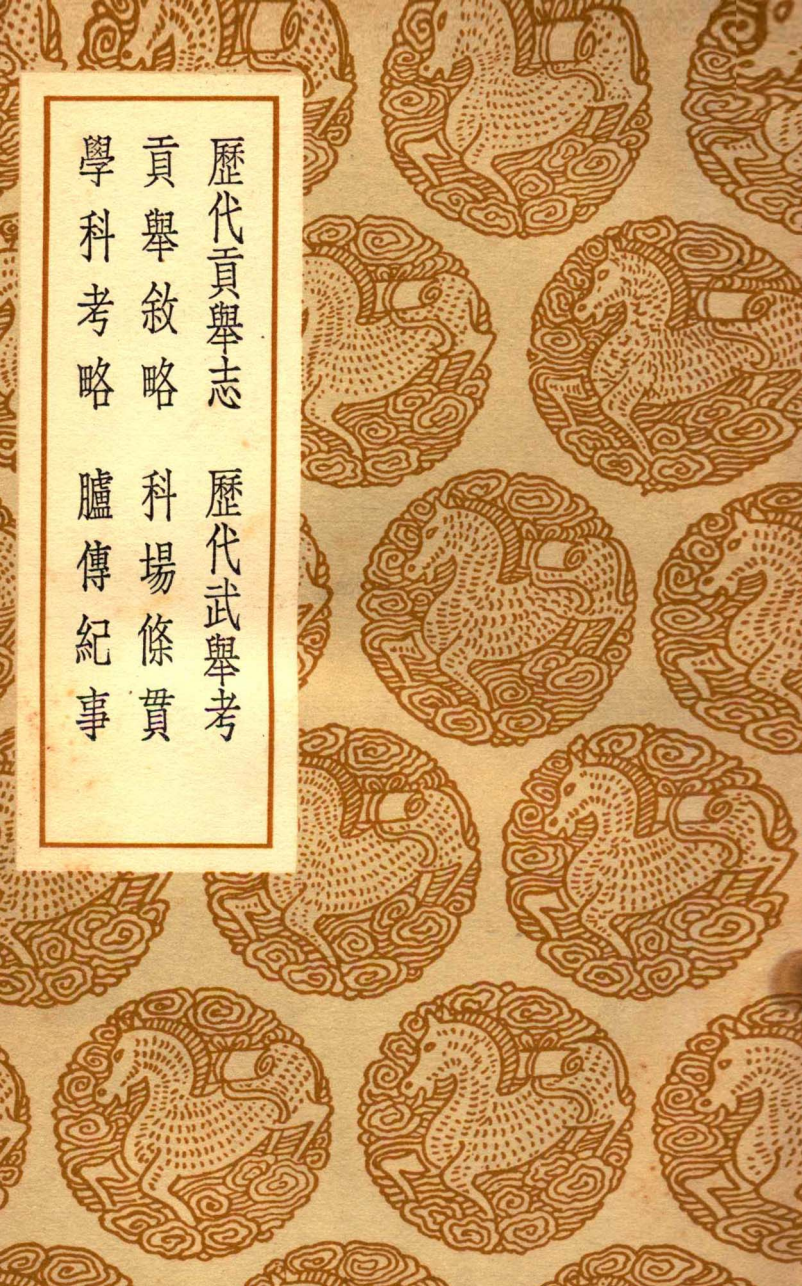 歷代貢舉志　歷代武舉考
貢舉敘略　科場條貫
學科考略　臚傳紀事